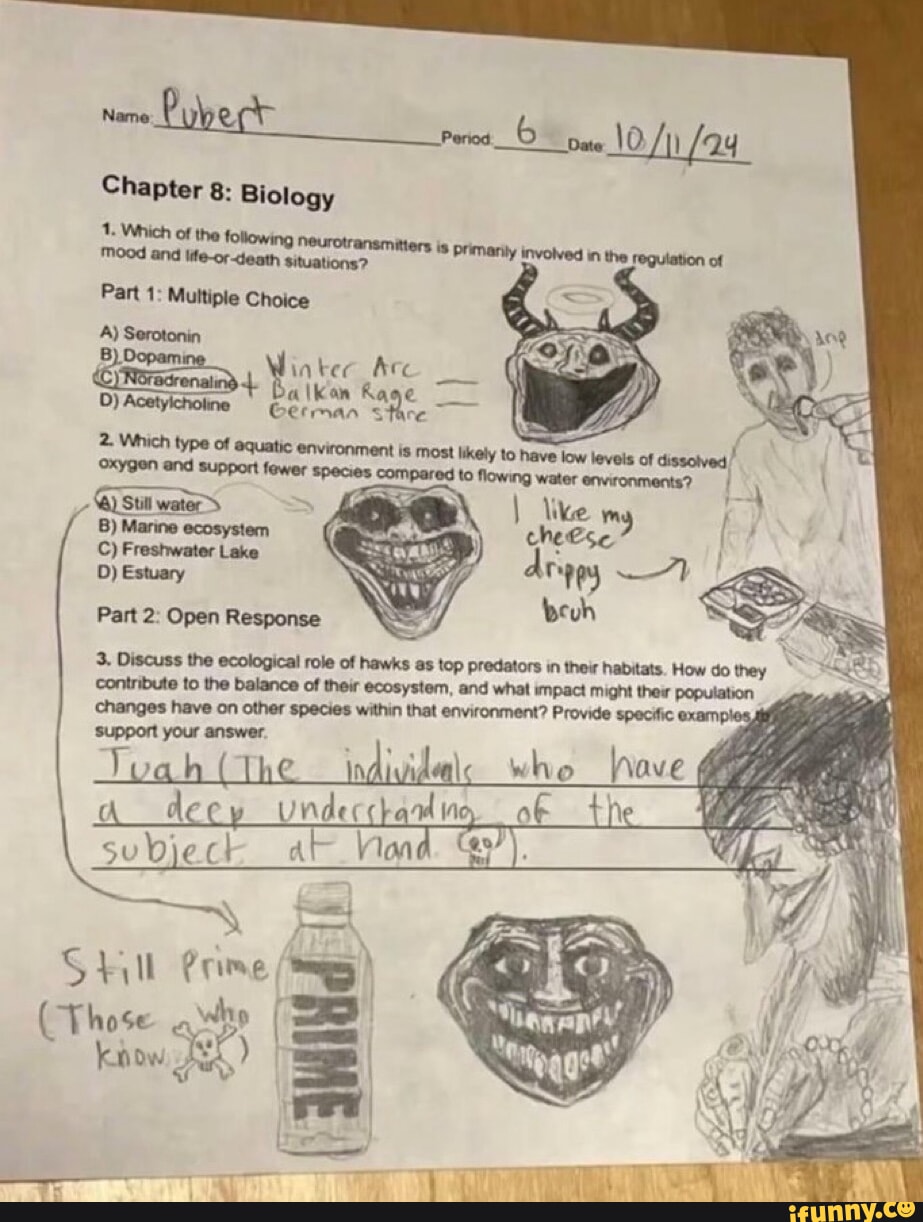 Name: Pubert
Period: 6 Date: 10/11/24
Chapter 8: Biology
1. Which of the following neurotransmitters is primarily involved in the regulation of
mood and life-or-death situations?
Part 1: Multiple Choice
A) Serotonin
B) Dopamine
C) Noradrenaline
D) Acetylcholine
+ Winter Arc
Balkan Rage =
German stare
drip
2. Which type of aquatic environment is most likely to have low levels of dissolved
oxygen and support fewer species compared to flowing water environments?
A) Still water
B) Marine ecosystem
C) Freshwater Lake
D) Estuary
I like my
cheese
drippy
bruh
Part 2: Open Response
3. Discuss the ecological role of hawks as top predators in their habitats. How do they
contribute to the balance of their ecosystem, and what impact might their population
changes have on other species within that environment? Provide specific examples to
support your answer.
Tuah (The individuals who have
a deep understanding of the
subject at hand ).
Still Prime
(Those who
know )
PRIME
ifunny.co